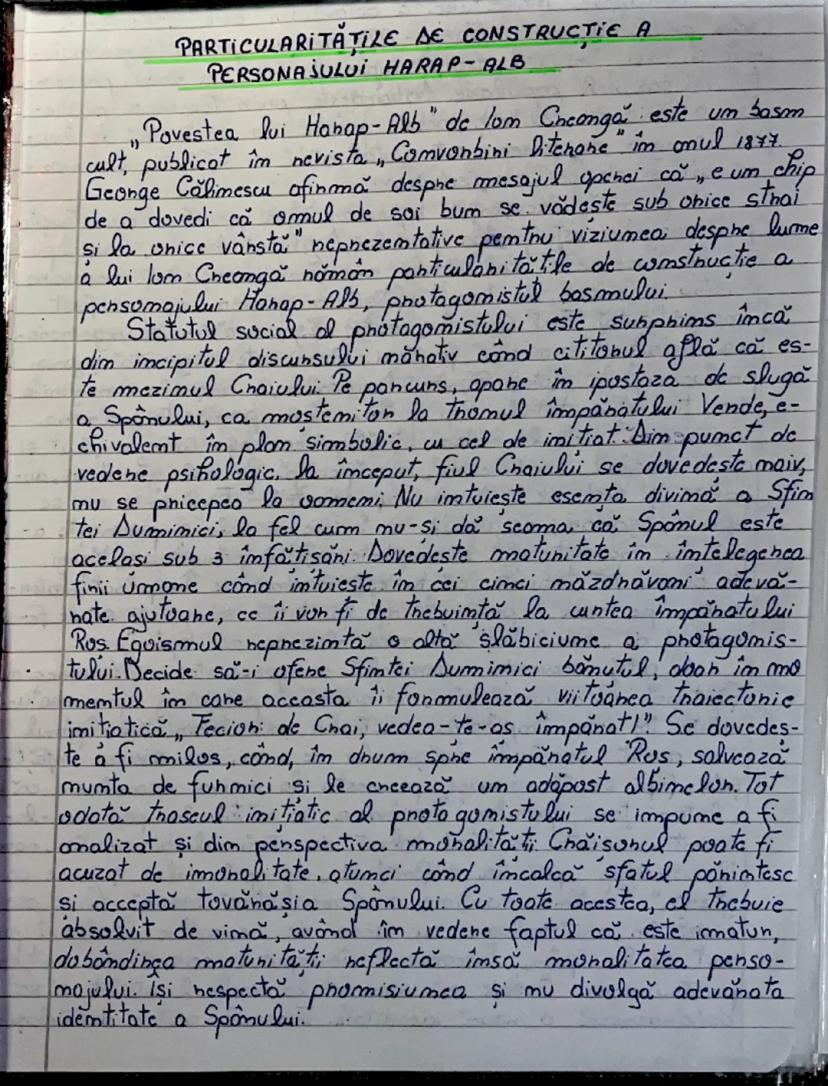 PARTICULARITĂȚILE DE CONSTRUCȚIE A
PERSONAJULUI HARAP-ALB
„Povestea lui Harap-Alb" de Ion Creangă este un basm
cult, publicat în revista „Convorbiri Literare" în anul 1877.
George Călinescu afirmă despre mesajul operei că „e un chip
de a dovedi că omul de soi bun se vădește sub orice strai
și la orice vârstă" reprezentative pentru viziunea despre lume
a lui Ion Creangă rămân particularitățile de construcție a
personajului Harap-Alb, protagonistul basmului.
Statutul social al protagonistului este surprins încă
din incipitul discursului narativ când cititorul află că es-
te mezinul Craiului. Pe parcurs, apare în ipostaza de slugă
a Spânului, ca moștenitor la tronul împăratului Verde, e-
chivalent în plan simbolic, cu cel de inițiat. Din punct de
vedere psihologic, la început, fiul Craiului se dovedește naiv,
nu se pricepea la oameni. Nu intuiește esența divină a Sfin
tei Duminici, la fel cum nu-și dă seama că Spânul este
același sub 3 înfățișări. Dovedește maturitate în înțelegerea
firii umane când intuiește în cei cinci măzdrăvani adevă-
rate ajutoare, ce îi vor fi de trebuință la curtea împăratului
Roș. Egoismul reprezintă o altă slăbiciune a protagonis-
tului. Decide să-i ofere Sfintei Duminici bănuțul, doar în mo
mentul în care aceasta îi formulează viitoarea traiectorie
inițiatică „Fecior de Crai, vedea-te-aș împărat!" Se dovedeș-
te a fi milos, când, în drum spre împăratul Roș, salvează
nunta de furnici și le creează un adăpost albinelor. Tot
odată traseul inițiatic al protagonistului se impune a fi
analizat și din perspectiva moralității. Crăișorul poate fi
acuzat de imoralitate, atunci când încalcă sfatul părintesc
și acceptă tovărășia Spânului. Cu toate acestea, el trebuie
absolvit de vină, având în vedere faptul că este imatur,
dobândirea maturității reflectă însă moralitatea perso-
najului. Își respectă promisiunea și nu divulgă adevărata
identitate a Spânului.